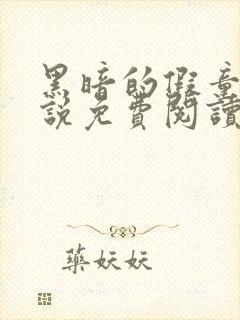 黑暗的假童
說免費閱讀
藥妖妖